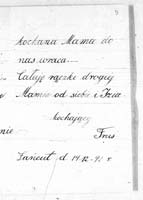 kochana Mama do
nas wraca
Całuję rączki drogiej
Mamie od siebie i
kochający
nie
Łańcut, d 14.12.